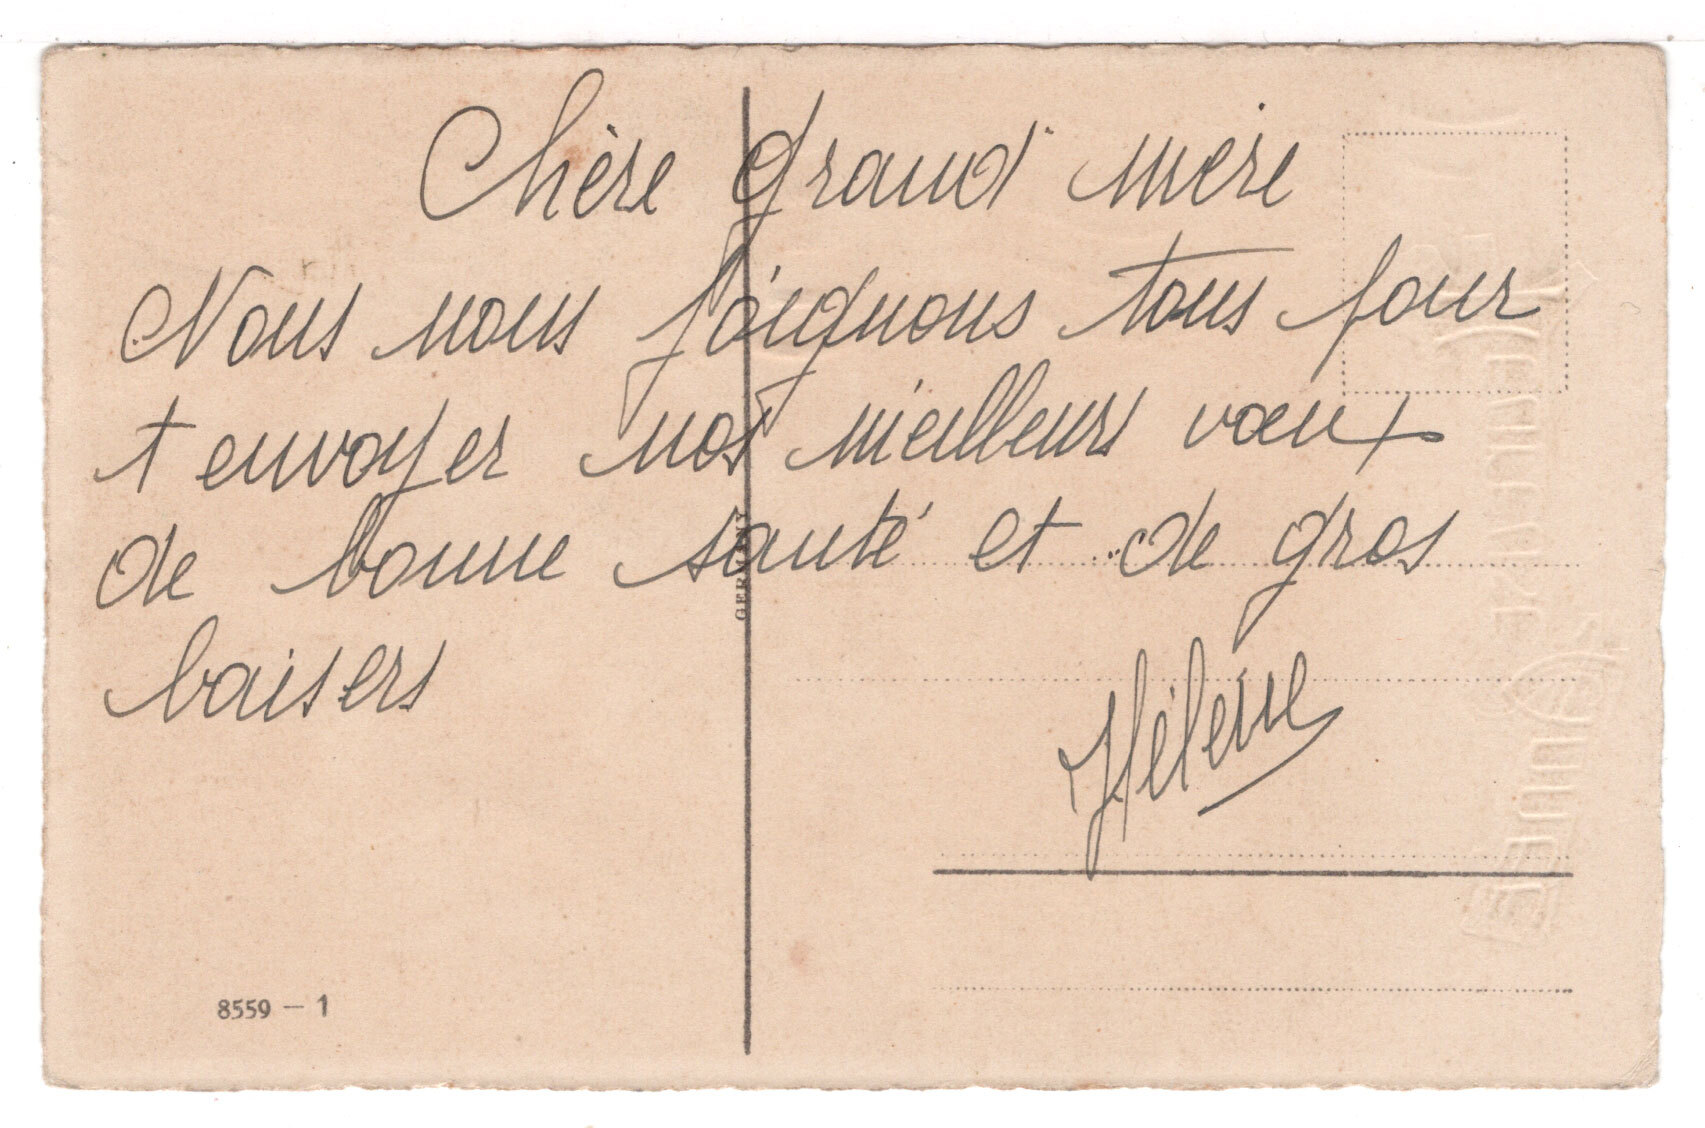 Chère grand' mère
Nous nous joignons tous pour
t envoyer nos meilleurs vœux
de bonne santé et de gros
baisers
Hélène
GERMANY
8559 — 1